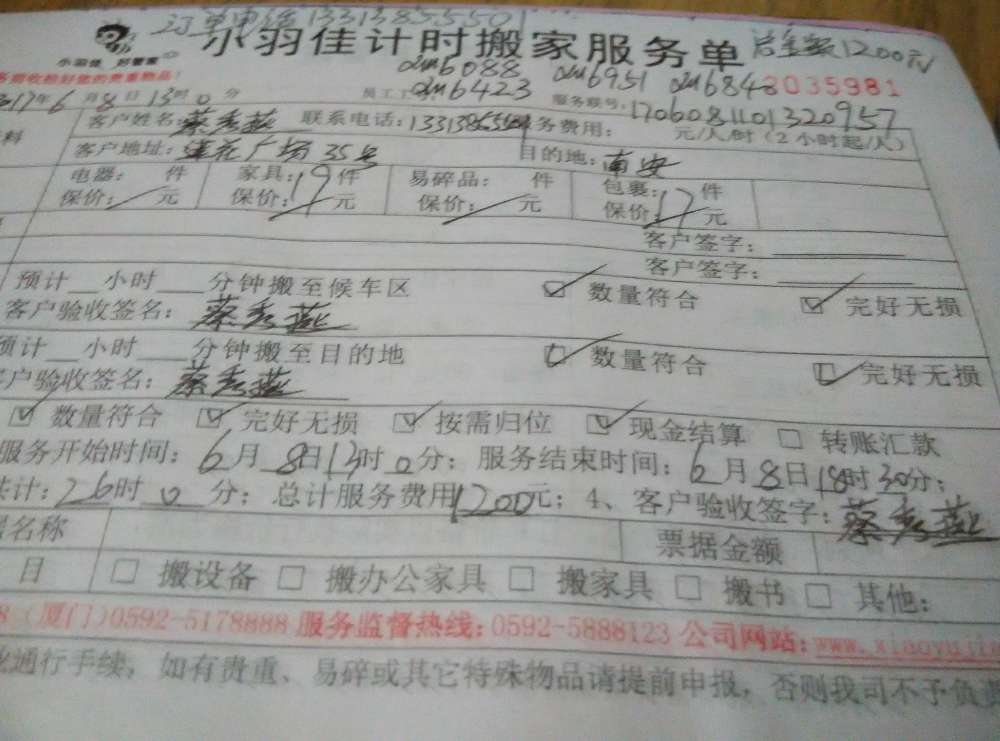 订单电话13313855501
小羽佳计时搬家服务单 总金额1200元
小羽佳 好管家
dm6088 dm6951 dm684 8035981
验收好您的贵重物品!
2017年6月8日13时0分 员工工 dm6423 服务联号: 1706081101320957
客户姓名: 蔡秀燕 联系电话: 务费用: 元/人/时(2小时起/人)
客户地址: 莲花广场35号 目的地: 南安
电器: 件 家具: 19件 易碎品: 件 包裹: 17件
保价: / 元 保价: / 元 保价: / 元 保价: / 元
客户签字:
客户签字:
预计__小时___分钟搬至候车区 ☑ 数量符合 ☑ 完好无损
客户验收签名: 蔡秀燕
预计__小时___分钟搬至目的地 ☑ 数量符合 ☑ 完好无损
客户验收签名: 蔡秀燕
☑ 数量符合 ☑ 完好无损 ☑ 按需归位 ☑ 现金结算 □ 转账汇款
服务开始时间: 6月8日13时0分; 服务结束时间: 6月8日18时30分;
共计: 26时0分; 总计服务费用1200元; 4、客户验收签字: 蔡秀燕
名称 票据金额
目 □ 搬设备 □ 搬办公家具 □ 搬家具 □ 搬书 □ 其他:
8 (厦门)0592-5178888 服务监督热线: 0592-5888123 公司网站: www.xiaoyujia
通行手续, 如有贵重、易碎或其它特殊物品请提前申报, 否则我司不予负责